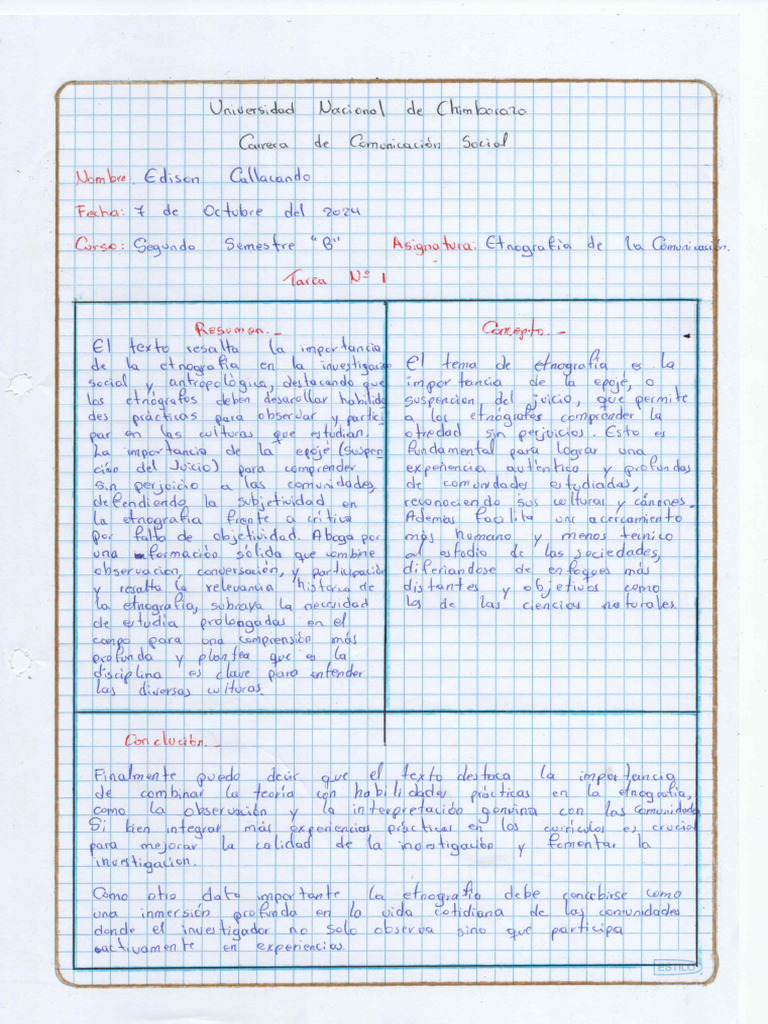 Universidad Nacional de Chimborazo
Carrera de Comunicación Social
Nombre: Edison Callacando
Fecha: 7 de Octubre del 2024
Curso: Segundo Semestre "B" Asignatura: Etnografia de la Comunicación.
Tarea Nº 1
Resumen._
El texto resalta la importancia
de la etnografia en la investigacion
social y antropológica, destacando que
los etnógrafos deben desarollar habilida
des prácticas para observar y partici
par en las culturas que estudian.
La importancia de la epojé (suspen
ción del Juicio) para comprender
sin perjoicio a las comunidades,
defendiendo la subjetividad en
la etnografia frente a critica
por falta de objetividad. Aboga por
una formación sólida que combine
observacion, conversación, y participación
y resalta la relevancia historica de
la etnografia, subraya la necesidad
de estudia prolongadas en el
campo para una comprensión más
profunda y plantea que es la
disciplina es clave para entender
las diversas culturas.
Concepto._
El tema de etnografia es la
importancia de la epojé, o
suspencion del juicio, que permite
a los etnógrafos comprender la
otredad sin perjuicios. Esto es
fundamental para lograr una
experiencia autentico y profundas
de comunidades estudiadas,
reconociendo sus culturas y cánones.
Además facilita une acercamiento
más humano y menos tecnico
al estudio de las sociedades,
diferiandose de enfoques más
distantes y objetivos como
los de las ciencias naturales.
Conclución._
Finalmente puedo decir que el texto destaca la importancia
de combinar la teoría con habilidades prácticas en la etnografia,
como la observación y la interpretación genuina con las comunidades
Si bien integrar más experiencias prácticas en los currículos es crucial
para mejorar la calidad de la investigación y fomentar la
investigacion.
Como otro dato importante la etnografia debe concebirse como
una inmersión profunda en la vida cotidiana de las comunidades
donde el investigador no solo observa sino que participa
activamente en experiencias.
ESTILO